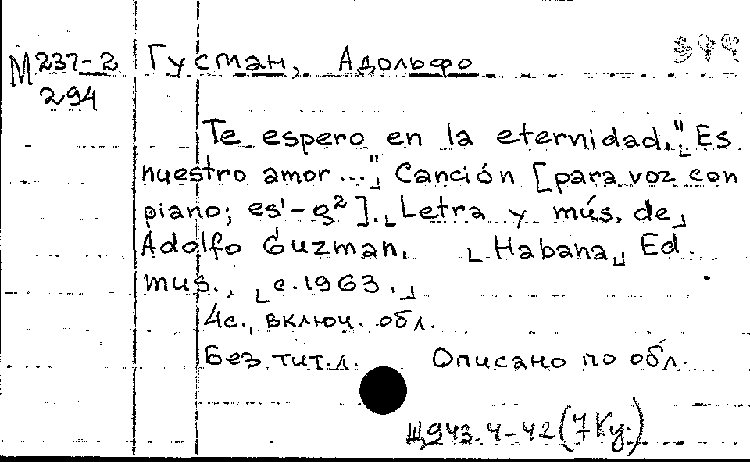 М 237-2 Гусман, Адольфо
294
Te espero en la eternidad. "Es
nuestro amor..." Canción [para voz con
piano; es¹-g²]. ⌞Letra y mús. de⌟
Adolfo Guzman. ⌞Habana⌟, Ed.
mus., ⌞c. 1963.⌟
4с., включ. обл.
Без тит.л. Описано по обл.
Щ943.4-42(7Ку.)